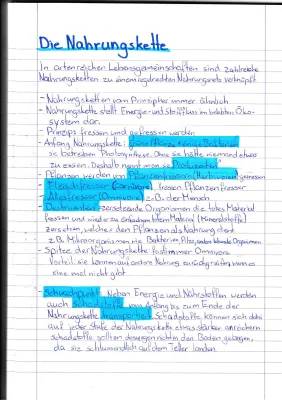 Die Nahrungskette
In artenreichen Lebensgemeinschaften sind zahlreiche
Nahrungsketten zu einem regelrechten Nahrungsnetz verknüpft
- Nahrungsketten vom Prinzip her immer ähnlich
- Nahrungskette stellt Energie- und Stoffluss im belebten Öko-
system dar.
- Prinzip: fressen und gefressen werden
- Anfang Nahrungskette: grüne Pflanze, einige Bakterien
sie betreiben Photosynthese. Ohne sie hätte niemand etwas
zu essen. Deshalb nennt man sie Produzenten
- Pflanzen werden von Pflanzenfressern (Herbivoren) gefressen
- Fleischfresser (Carnivore) fressen Pflanzenfresser
- Allesfresser (Omnivore) z.B. der Mensch
- Destruenten: zersetzende Organismen die totes Material
fressen und wieder zu anfachem Material (Mineralstoffe)
zersetzen, welche den Pflanzen als Nahrung dient
z.B. Mikroorganismen wie Bakterien, Pilze, andere lebende Organismen
- Spitze der Nahrungskette fast immer Omnivore
Vorteil: sie können auf andere Nahrung zurückgreifen wenn es
eine mal nicht gibt
- Schwachpunkt: Neben Energie und Nährstoffen werden
auch Schadstoffe vom Anfang bis zum Ende der
Nahrungskette transportiert. Schadstoffe können sich dabei
auf jeder Stufe der Nahrungskette etwas stärker anreichern
schadstoffe sollten deswegen nicht in den Boden gelangen,
da sie schlussendlich auf dem Teller landen.